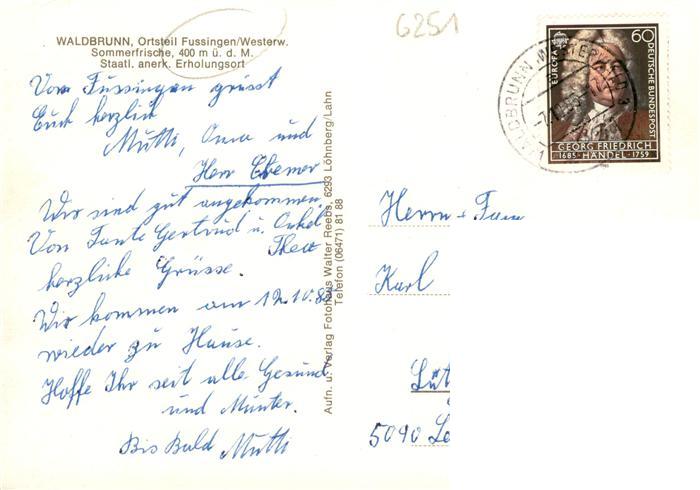 6251
WALDBRUNN, Ortsteil Fussingen/Westerw.
Sommerfrische, 400 m ü. d. M.
Staatl. anerk. Erholungsort
Von Fussingen grüsst
Euch herzlich
Mutti, Oma und
Herr
Wir sind gut angekommen,
Von Tante Gertrud u. Onkel
Theo
herzliche Grüsse.
Wir kommen am 12.10.85
wieder zu Hause.
Hoffe Ihr seit alle Gesund
und Munter.
Bis Bald Mutti
Aufn. u. Verlag Fotohaus Walter Reebs, 6293 Löhnberg/Lahn
Telefon (06471) 81 88
EUROPA
60
DEUTSCHE BUNDESPOST
GEORG FRIEDRICH
1685 HÄNDEL 1759
WALDBRUNN
Herrn + Fam
Karl
Lüt
5090 Le